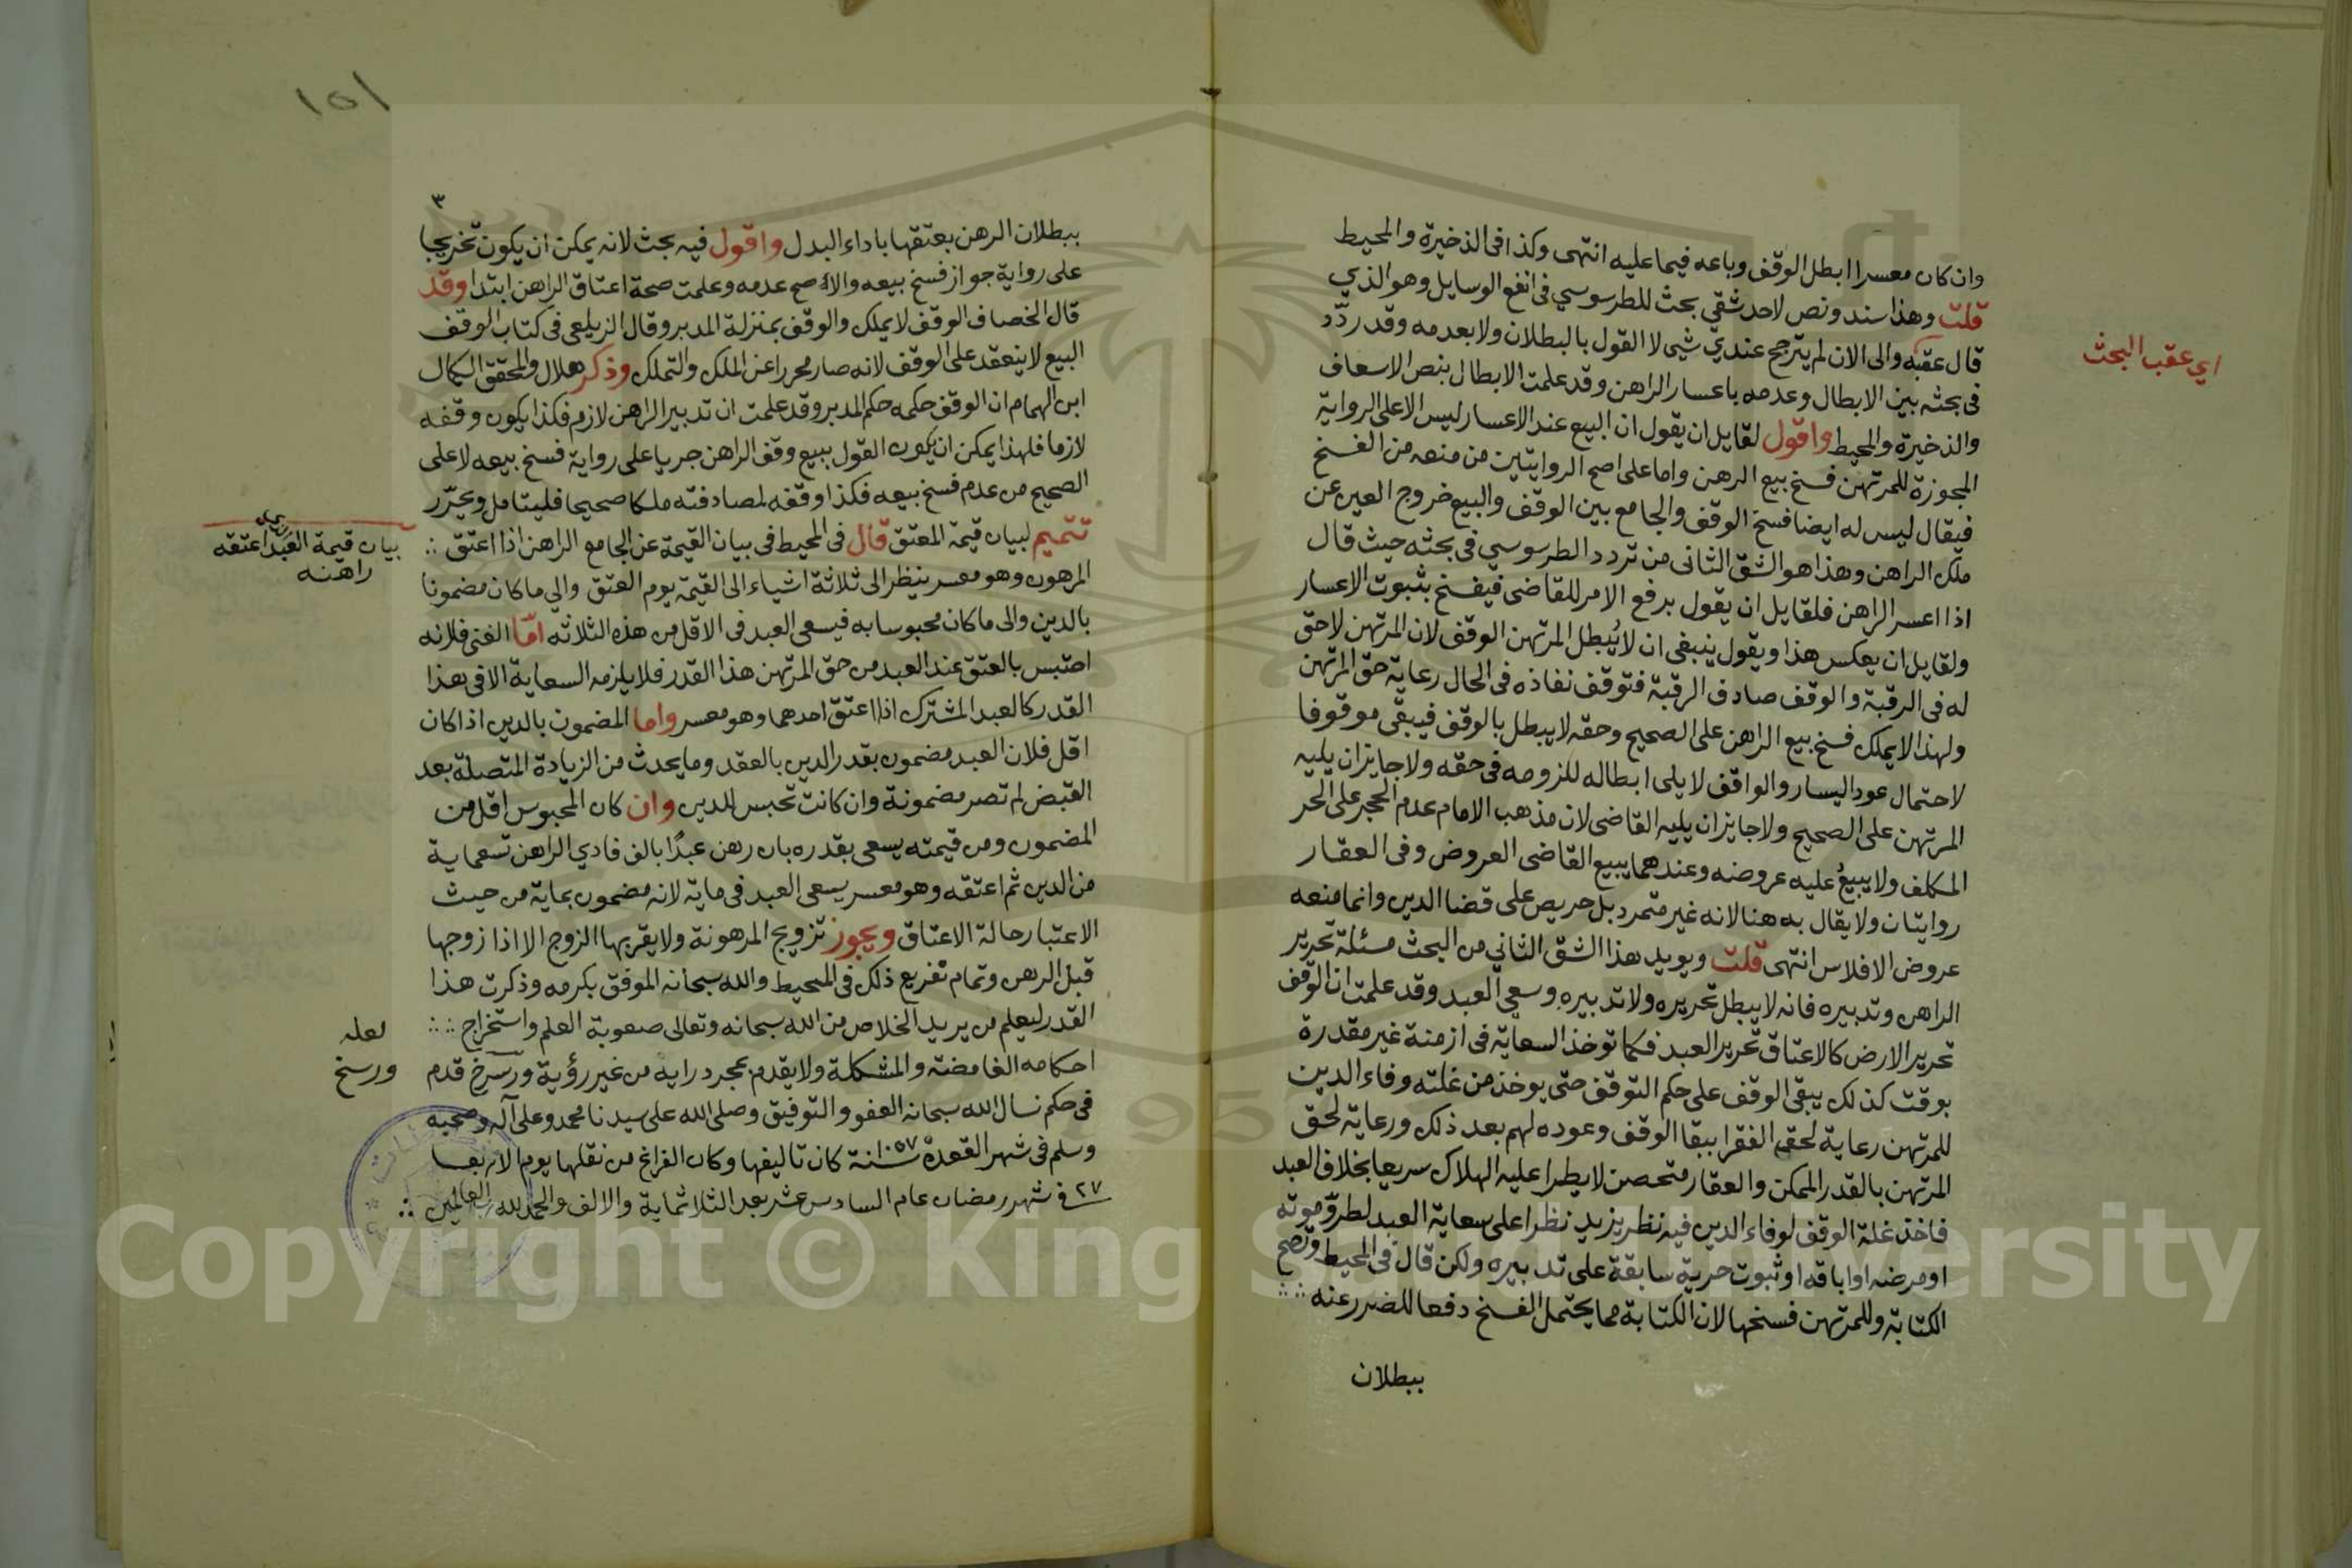 وان كان معسرا ابطل الوقف وباعه فيما عليه انتهى وكذا فى الذخيرة والمحيط
قلت وهذا سند ونص لاحد شقي بحث للطرسوسي فى انفع الوسايل وهو الذي
قال عقبه والى الان لم يترجح عندي شي لا القول بالبطلان ولا بعدمه وقد ردّد
اي عقب البحث
فى بحثه بين الابطال وعدمه باعسار الراهن وقد علمت الابطال بنص الاسعاف
والذخيرة والمحيط واقول لقايل ان يقول ان البيع عند الاعسار ليس الا على الرواية
المجوزة للمرتهن فسخ بيع الرهن واما على اصح الروايتين من منعه من الفسخ
فيقال ليس له ايضا فسخ الوقف والجامع بين الوقف والبيع خروج العين عن
ملك الراهن وهذا هو الشق الثانى من تردد الطرسوسي فى بحثه حيث قال
اذا اعسر الراهن فلقايل ان يقول برفع الامر للقاضى فيفسخ بثبوت الاعسار
ولقايل ان يعكس هذا ويقول ينبغى ان لا يُبطل المرتهن الوقف لان المرتهن لا حق
له فى الرقبة والوقف صادف الرقبة فتوقف نفاذه فى الحال رعاية حق المرتهن
ولهذا لا يملك فسخ بيع الراهن على الصحيح وحقه لا يبطل بالوقف فيبقى موقوفا
لاحتمال عود اليسار والواقف لا يلى ابطاله للزومه فى حقه ولا جايز ان يليه
المرتهن على الصحيح ولا جايز ان يليه القاضى لان مذهب الامام عدم الحجر على الحر
المكلف ولا يبيعُ عليه عروضه وعندهما يبيع القاضى العروض وفى العقار
روايتان ولا يقال به هنا لانه غير متمرد بل حريص على قضا الدين وانما منعه
عروض الافلاس انتهى قلت ويويد هذا الشق الثاني من البحث مسئلة تحرير
الراهن وتدبيره فانه لا يبطل تحريره ولا تدبيره وسعي العبد وقد علمت ان الوقف
تحرير الارض كالاعتاق تحرير العبد فكما توخذ السعاية فى ازمنة غير مقدرة
بوقت كذلك يبقى الوقف على حكم التوقف حتى يوخذ من غلته وفاء الدين
للمرتهن رعاية لحق الفقرا ببقا الوقف وعوده لهم بعد ذلك ورعاية لحق
المرتهن بالقدر الممكن والعقار متحصن لا يطرا عليه الهلاك سريعا بخلاف العبد
فاخذ غلة الوقف لوفاء الدين فيه نظر يزيد نظرا على سعاية العبد لطروّ موته
او مرضه او اباقه او ثبوت حرية سابقة على تدبيره ولكن قال فى المحيط وتصح
الكتابة وللمرتهن فسخها لان الكتابة مما يحتمل الفسخ دفعا للضرر عنه
ببطلان
١٥١
٣
ببطلان الرهن بعتقها باداء البدل واقول فيه بحث لانه يمكن ان يكون تخريجا
على رواية جواز فسخ بيعه والاصح عدمه وعلمت صحة اعتاق الراهن ابتدا وقد
قال الخصاف الوقف لا يملك والوقف بمنزلة المدبر وقال الزيلعى فى كتاب الوقف
البيع لا ينعقد على الوقف لانه صار محررا عن الملك والتملك وذكر هلال والمحقق الكمال
ابن الهمام ان الوقف حكمه حكم المدبر وقد علمت ان تدبير الراهن لازم فكذا يكون وقفه
لازما فلهذا يمكن ان يكون القول ببيع وقف الراهن جريا على رواية فسخ بيعه لا على
الصحيح من عدم فسخ بيعه فكذا وقفه لمصادفته ملكا صحيحا فليتامل ويحرّر
تتميم لبيان قيمة المعتق قال فى المحيط فى بيان القيمة عن الجامع الراهن اذا اعتق
بيان قيمة العبد اعتقه
راهنه
المرهون وهو معسر ينظر الى ثلاثة اشياء الى القيمة يوم العتق والي ما كان مضمونا
بالدين والى ما كان محبوسا به فيسعى العبد فى الاقل من هذه الثلاثه امّا الغنى فلانه
احتبس بالعتق عند العبد من حق المرتهن هذا القدر فلا يلزمه السعاية الا فى هذا
القدر كالعبد المشترك اذا اعتق احدهما وهو معسر واما المضمون بالدين اذا كان
اقل فلان العبد مضمون بقدر الدين بالعقد وما يحدث من الزيادة المتصلة بعد
القبض لم تصر مضمونة وان كانت تحبس للدين وان كان المحبوس اقل من
المضمون ومن قيمته يسعى بقدره بان رهن عبدًا بالف فادي الراهن تسعماية
من الدين ثم اعتقه وهو معسر يسعى العبد فى ماية لانه مضمون بماية من حيث
الاعتبار حالة الاعتاق ويجوز تزويج المرهونة ولا يقربها الزوج الا اذا زوجها
قبل الرهن وتمام تفريع ذلك فى المحيط والله سبحانه الموفق بكرمه وذكرت هذا
القدر ليعلم من يريد الخلاص من الله سبحانه وتعالى صعوبة العلم واستخراج
احكامه الغامضة والمشكلة ولا يقدم بمجرد راية من غير رؤية ورسرخ قدم
لعله
ورسخ
فى حكم نسال الله سبحانه العفو والتوفيق وصلى الله على سيدنا محمد وعلى آله وصحبه
وسلم فى شهر القعدة سنة ١٠٥٧ كان تاليفها وكان الفراغ من نقلها يوم الاربعا
٢٧ فى شهر رمضان عام السادس عشر بعد الثلاثماية والالف والحمد لله رب العالمين
Copyright © King Saud University